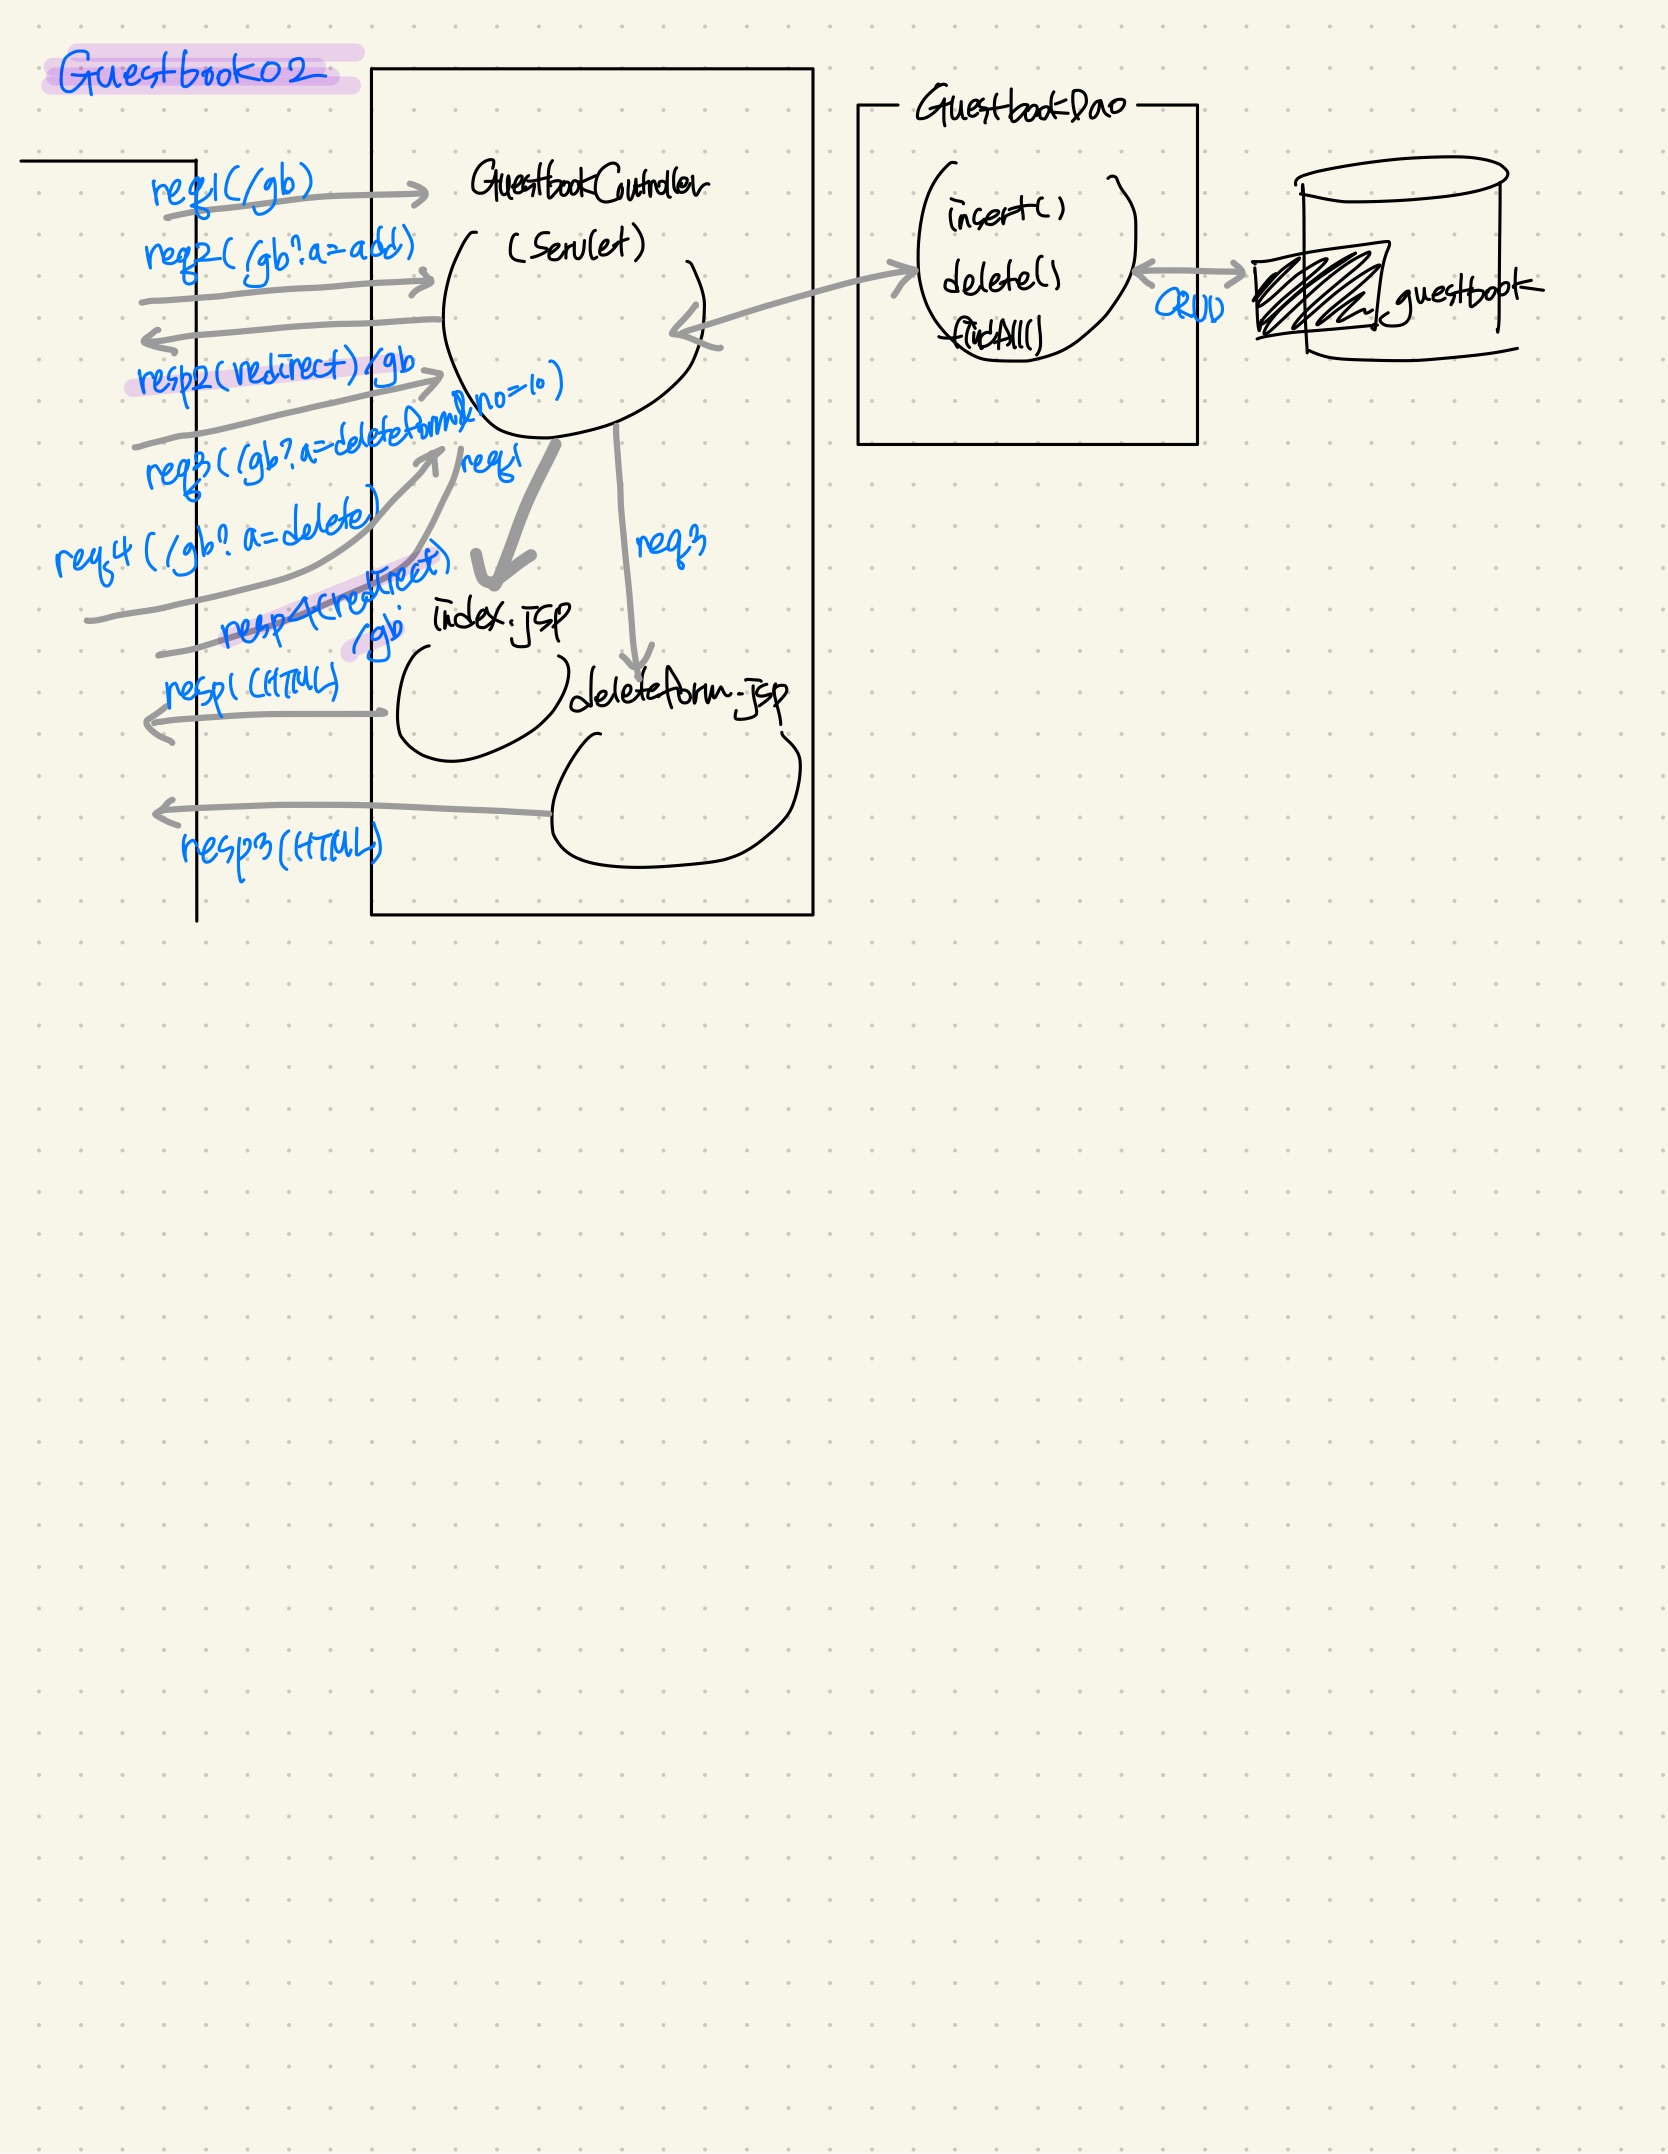 Guestbook02
req1(/gb)
req2(/gb?a=add)
resp2(redirect)/gb
req3(/gb?a=deleteform&no=10)
req4(/gb?a=delete)
resp4(redirect)
/gb
resp1(HTML)
resp3(HTML)
GuestbookController
(Servlet)
req1
req3
index.jsp
deleteform.jsp
GuestbookDao
insert()
delete()
findAll()
CRUD
guestbook